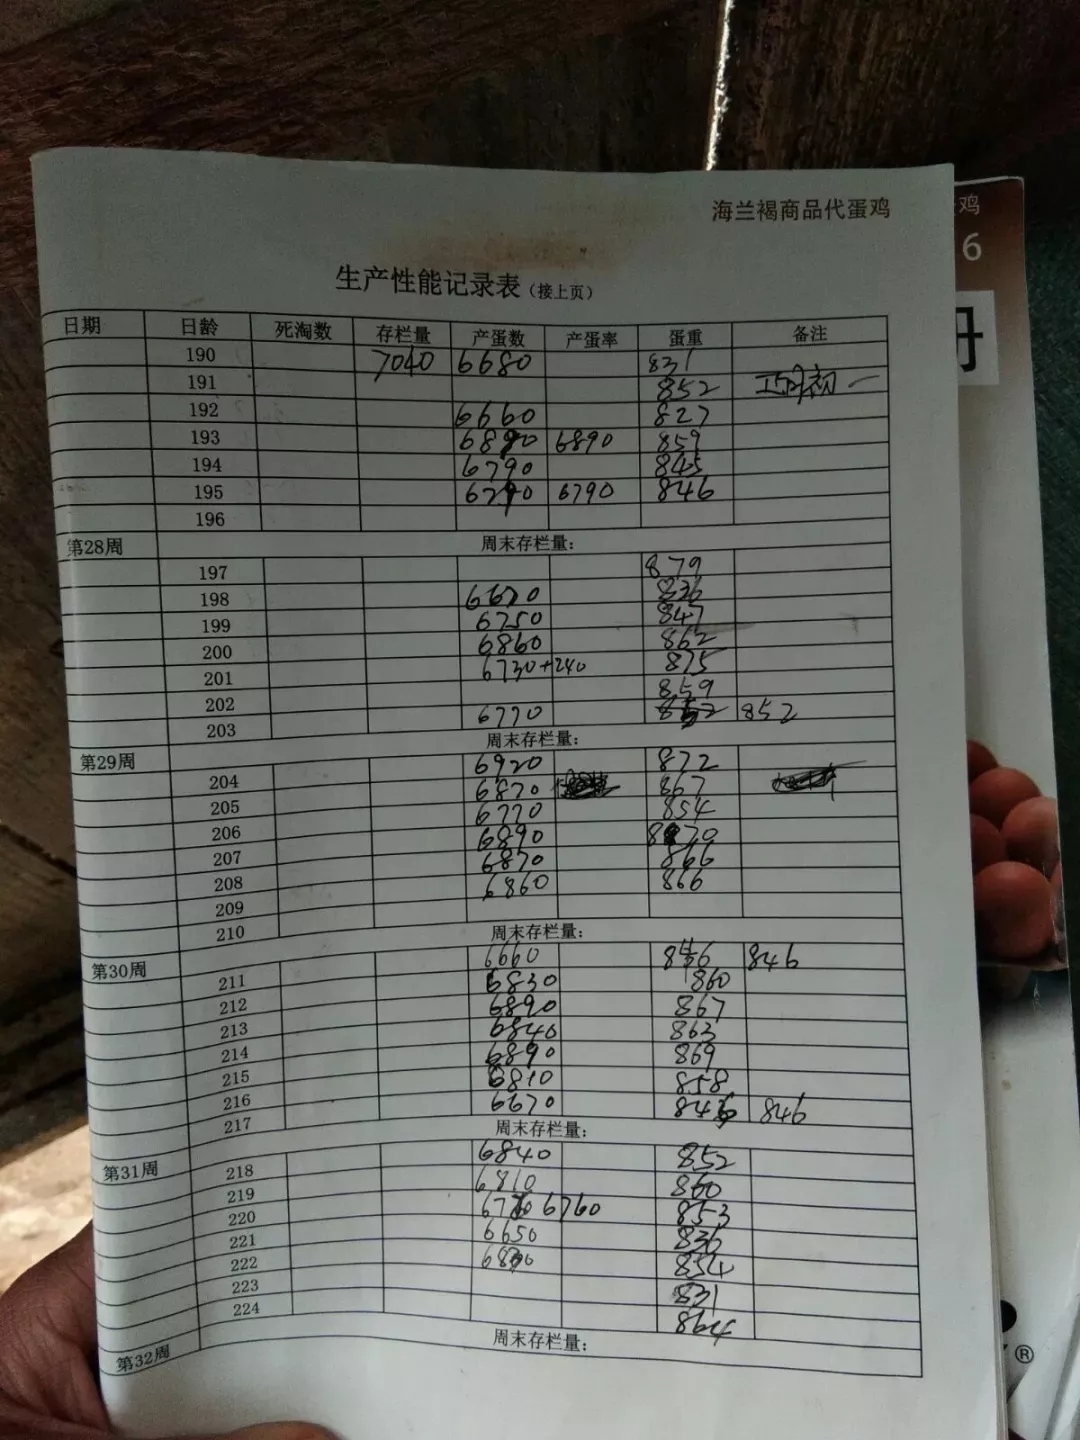 海兰褐商品代蛋鸡
鸡
6
册
生产性能记录表（接上页）
日期 日龄 死淘数 存栏量 产蛋数 产蛋率 蛋重 备注
190 7040 6680 831
191 852
192 6660 827
193 6890 6890 859
194 6790 845
195 6790 6790 846
196
第28周 周末存栏量：
197 879
198 6670 836
199 6750 847
200 6860 862
201 6730+240 875
202 859
203 6770 852 852
第29周 周末存栏量：
204 6920 872
205 6870 867
206 6770 854
207 6890 870
208 6870 866
209 6860 866
210
第30周 周末存栏量：
211 6660 846 846
212 6830 860
213 6890 867
214 6840 863
215 6890 869
216 6810 858
217 6670 846 846
第31周 周末存栏量：
218 6840 852
219 6810 860
220 6760 6760 853
221 6650 836
222 854
223 831
224 864
第32周 周末存栏量：
®